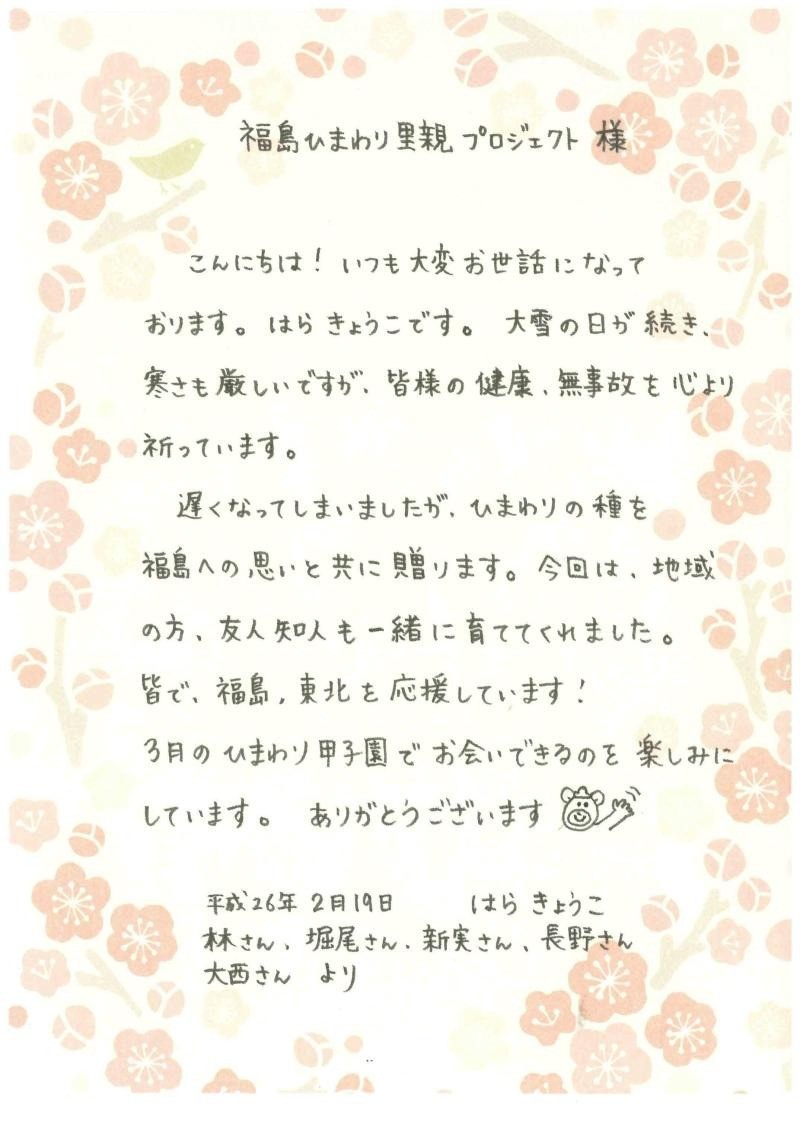 福島ひまわり里親プロジェクト 様
こんにちは！いつも大変お世話になって
おります。はら きょうこです。 大雪の日が続き、
寒さも厳しいですが、皆様の健康、無事故を心より
祈っています。
遅くなってしまいましたが、ひまわりの種を
福島への思いと共に贈ります。今回は、地域
の方、友人知人も一緒に育ててくれました。
皆で、福島，東北を応援しています！
3月のひまわり甲子園でお会いできるのを楽しみに
しています。 ありがとうございます
平成26年 2月19日 はら きょうこ
林さん、堀尾さん、新実さん、長野さん
大西さん より